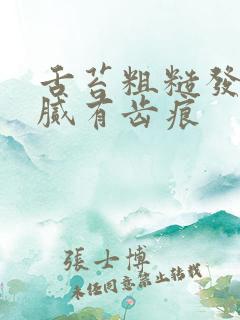 舌苔粗糙發
膩有齿痕
張士博
未经同意禁止转载